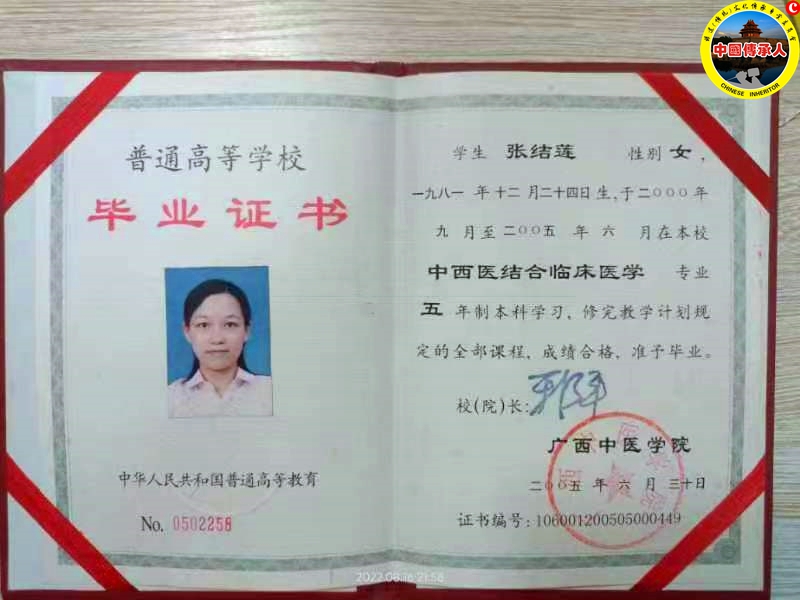 中國傳承人
CHINESE INHERITOR
C
普通高等学校
毕业证书
中华人民共和国普通高等教育
No. 0502258
学生 张结莲 性别 女，
一九八一 年 十二 月 二十四日 生，于 二〇〇〇 年
九 月至 二〇〇五 年 六 月在本校
中西医结合临床医学 专业
五 年制本科学习，修完教学计划规
定的全部课程，成绩合格，准予毕业。
校(院)长：
广西中医学院
二〇〇五 年 六 月 三十日
证书编号：106001200505000449
2022.08.16 21:58